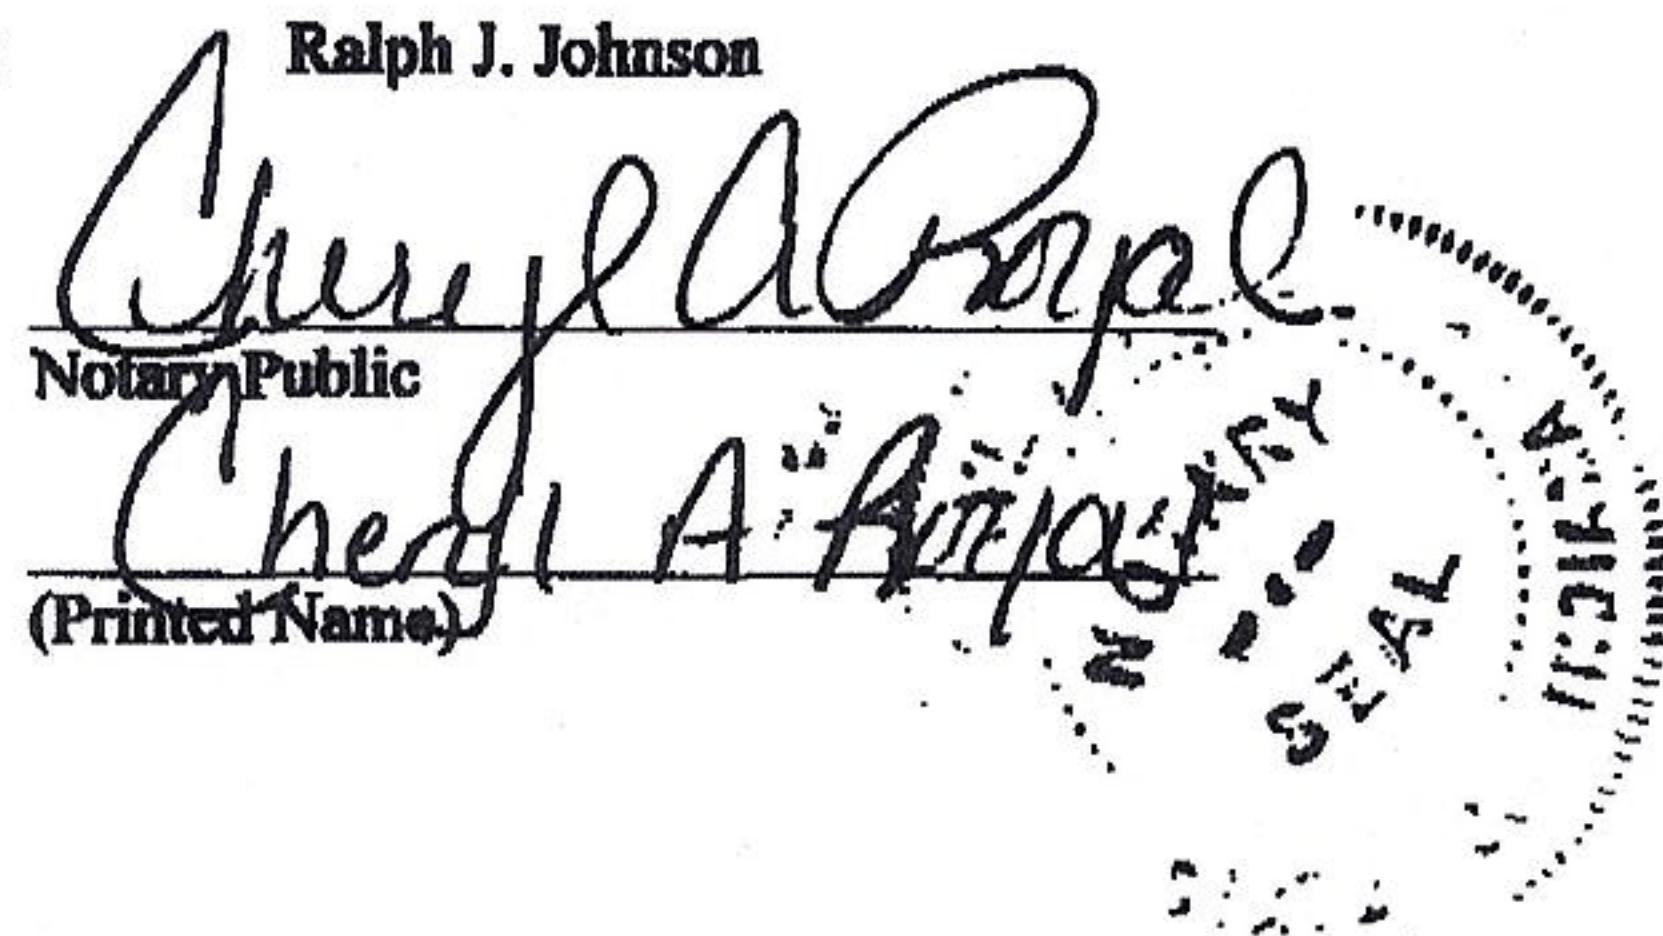 Ralph J. Johnson
Cheryl A Royal
Notary Public
Cheryl A Royal
(Printed Name)
NOTARY
SEAL